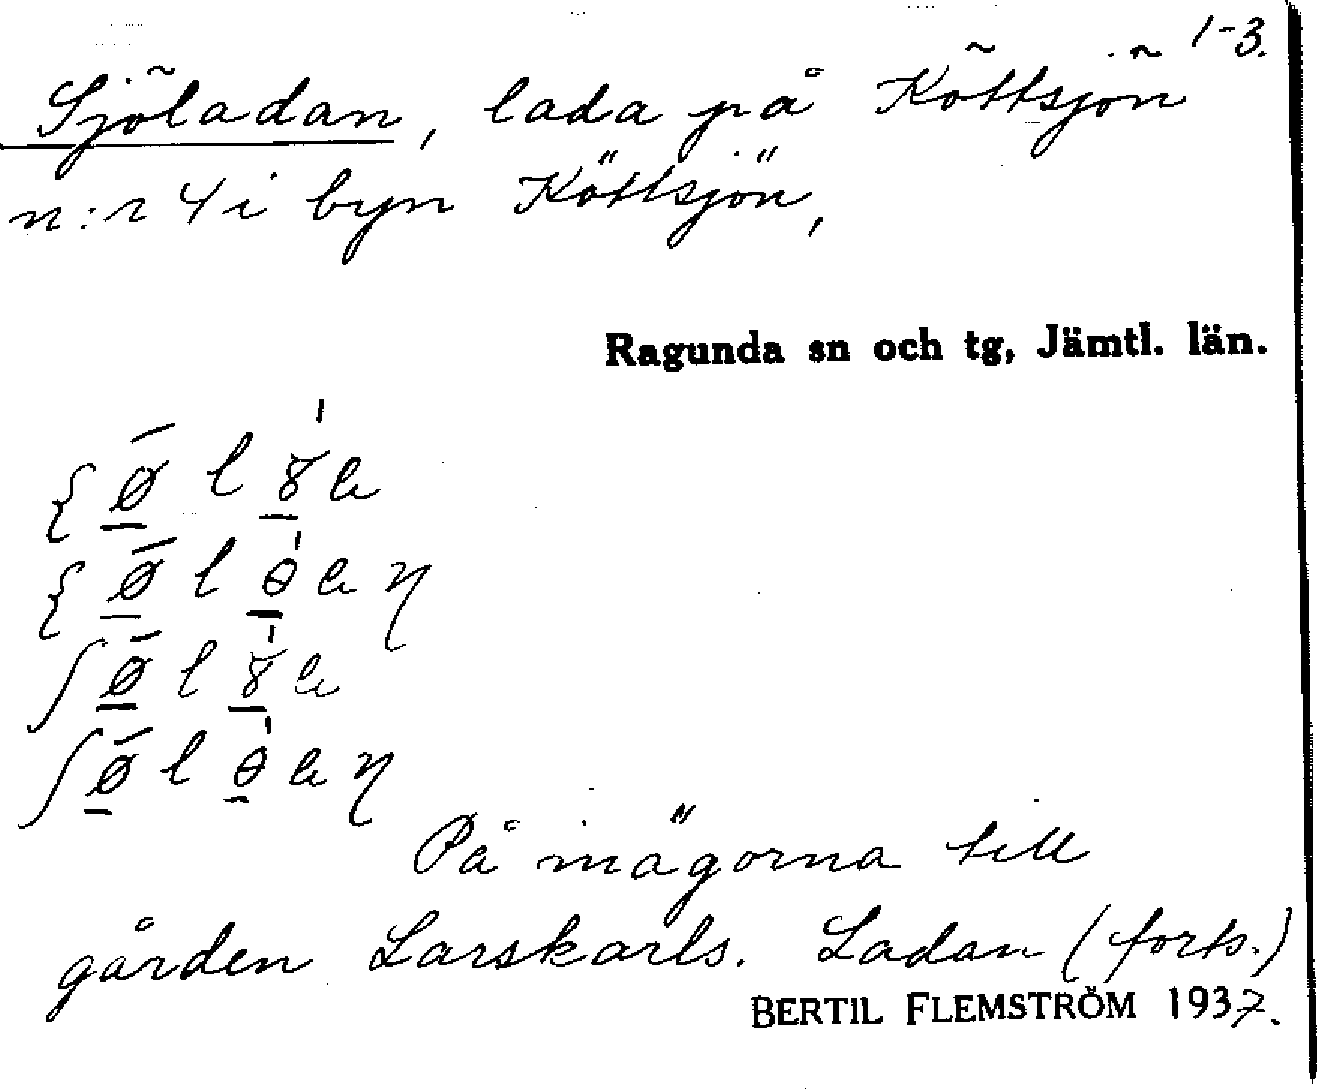 1-3.
Sjöladan, lada på Köttsjön
n:r 4 i byn Köttsjön,
Ragunda sn och tg, Jämtl. län.
På inägorna till
gården Larskarls. Ladan (forts.)
BERTIL FLEMSTRÖM 1937.